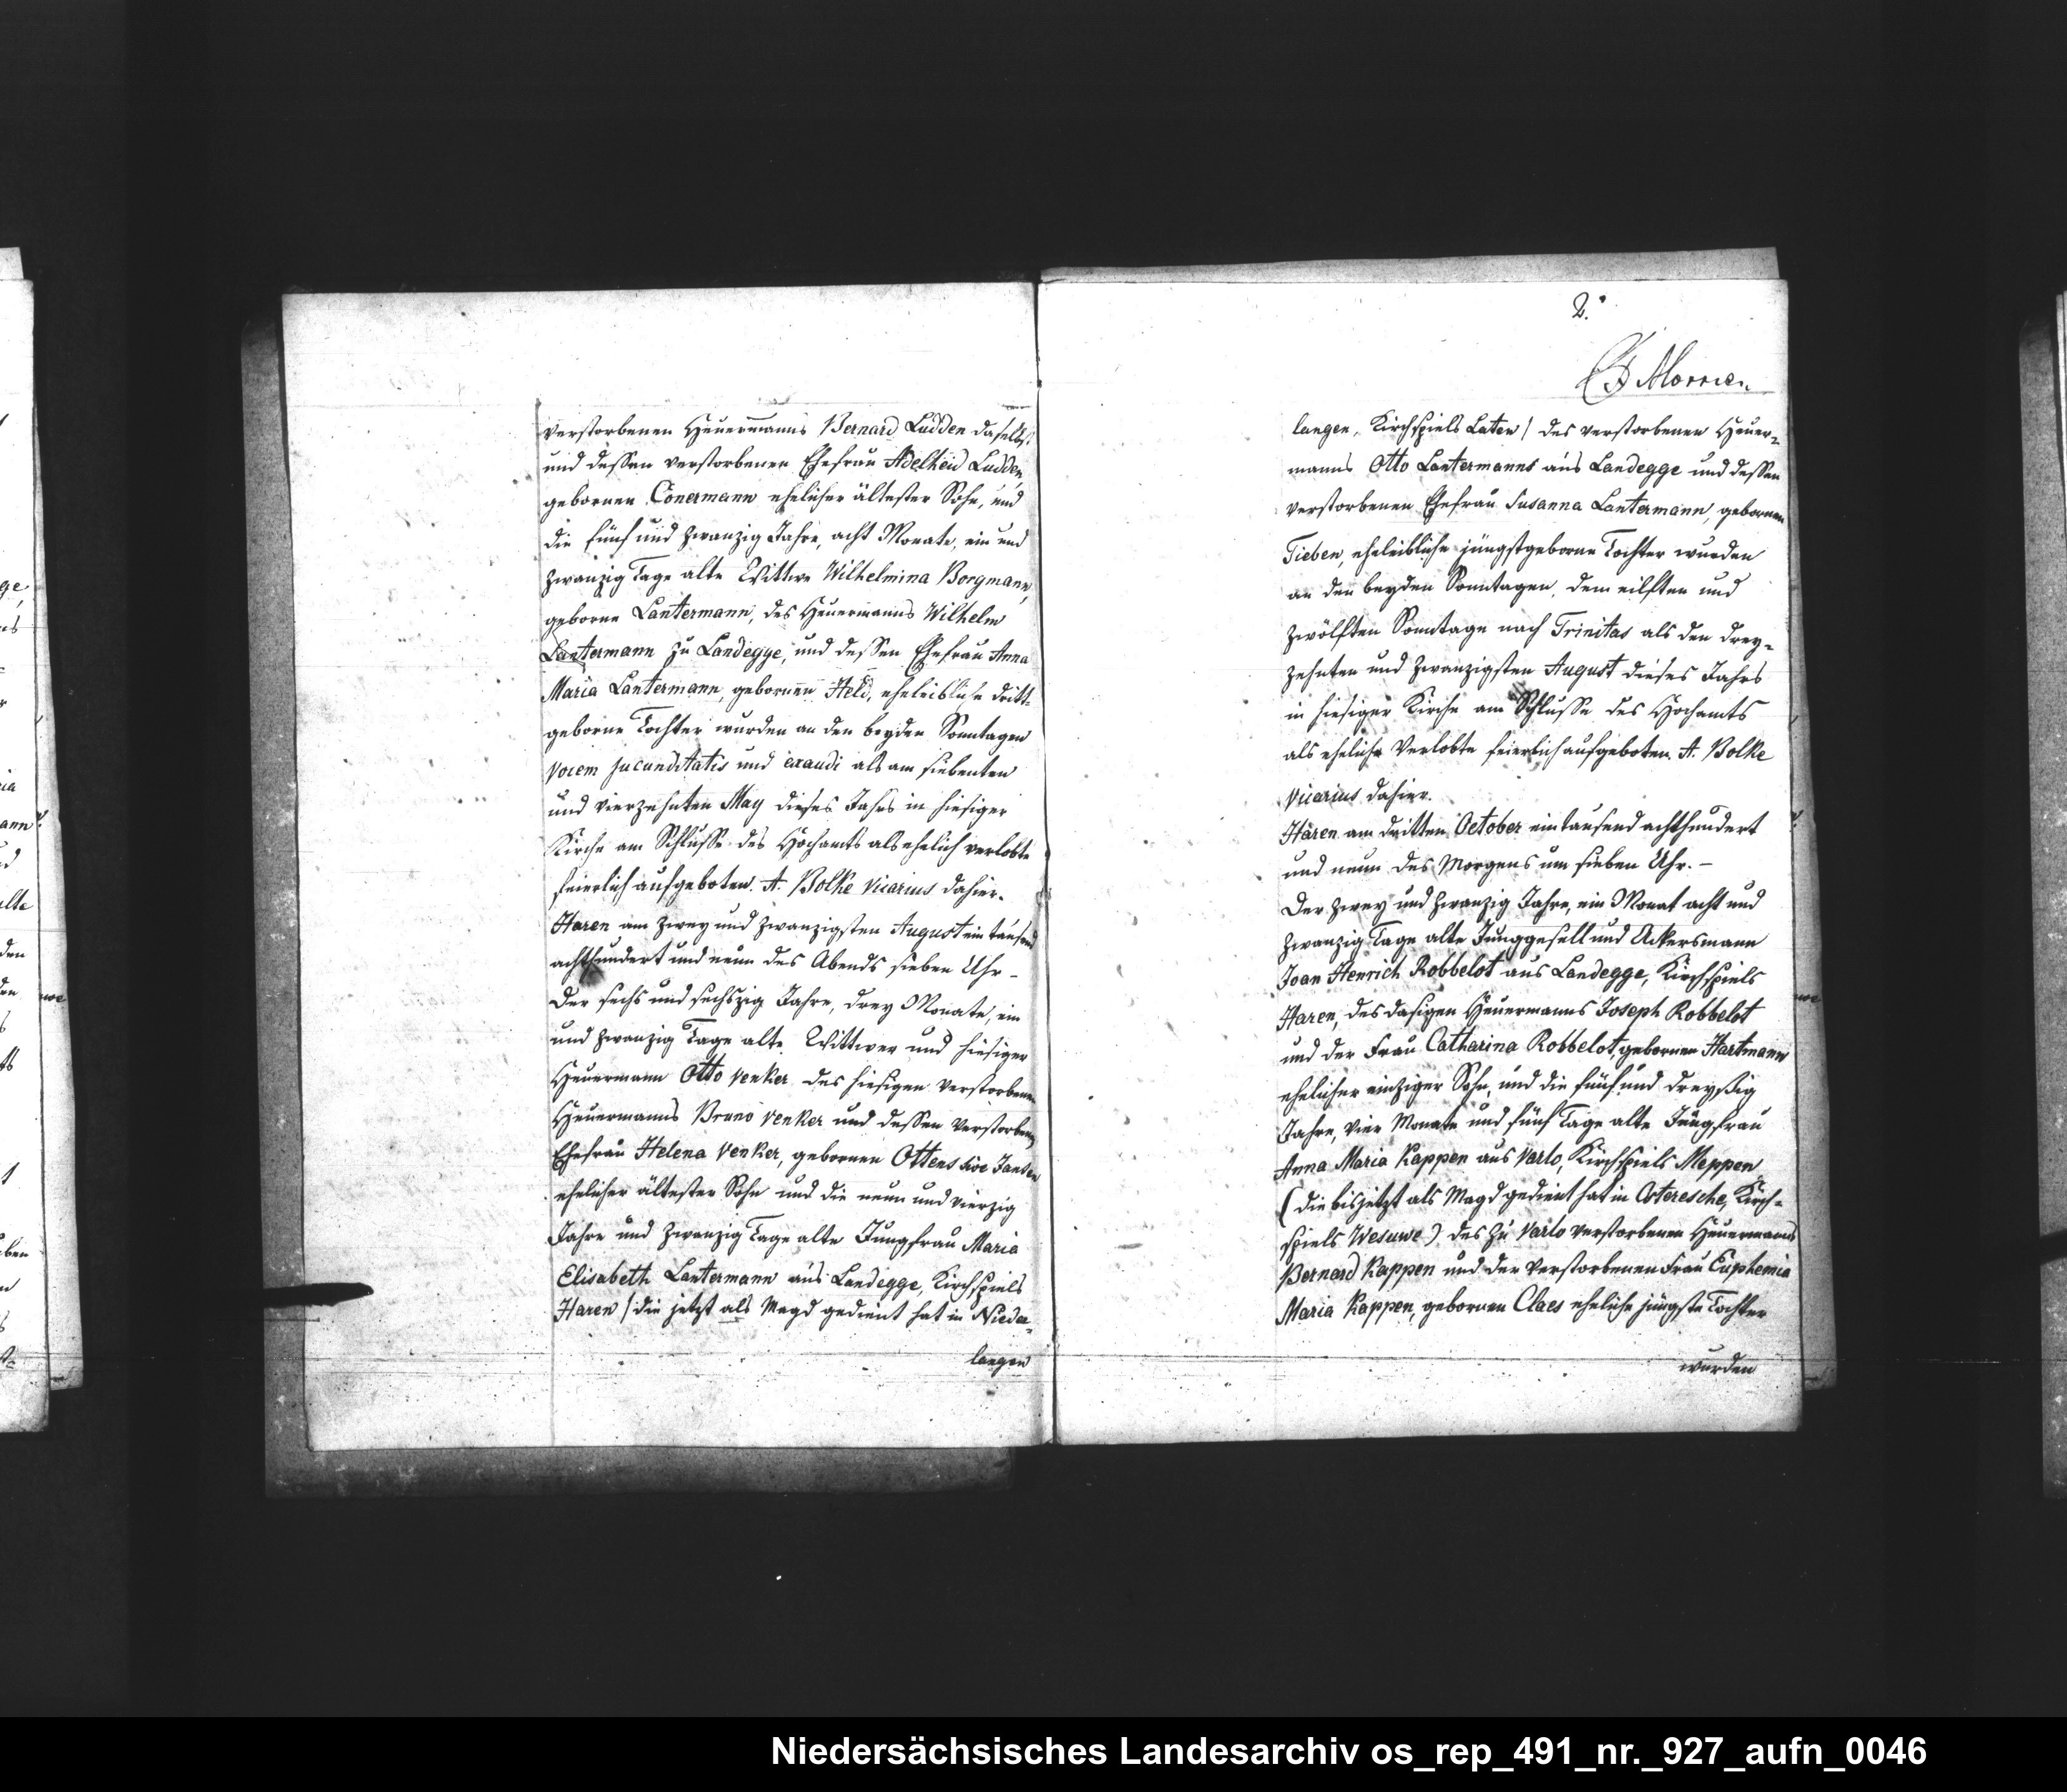 verstorbenen Heuermanns Bernard Ludden daselbst
und dessen verstorbenen Ehefrau Adelheid Ludden,
gebornen Conermann ehelicher ältester Sohn, und
die fünf und zwanzig Jahre, acht Monate, ein und
zwanzig Tage alte Wittwe Wilhelmina Borgmann,
geborne Lantermann, des Heuermanns Wilhelm
Lantermann zu Landegge, und dessen Ehefrau Anna
Maria Lantermann, gebornen Held, eheleibliche dritt-
geborne Tochter wurden an den beyden Sonntagen
Vocem jucunditatis und exaudi als am siebenten
und vierzehnten May dieses Jahrs in hiesiger
Kirche am Schlusse des Hochamts als ehelich verlobte
feierlich aufgeboten. A. Bolke Vicarius dahier.
Haren am zwey und zwanzigsten August ein tausend
achthundert und neun des Abends sieben Uhr -
Der sechs und sechszig Jahre, drey Monate, ein
und zwanzig Tage alte Wittwer und hiesiger
Heuermann Otto Venker des hiesigen verstorbenen
Heuermanns Bruno Venker und dessen verstorbenen
Ehefrau Helena Venker, gebornen Ottens sive Jansen
ehelicher ältester Sohn und die neun und vierzig
Jahre und zwanzig Tage alte Jungfrau Maria
Elisabeth Lantermann aus Landegge, Kirchspiels
Haren / die jetzt als Magd gedient hat in Nieder-
langen
2.
Morrien
langen, Kirchspiels Laten / des verstorbenen Heuer-
manns Otto Lantermanns aus Landegge und dessen
verstorbenen Ehefrau Susanna Lantermann, gebornen
Tieben, eheleibliche jüngstgeborne Tochter wurden
an den beyden Sonntagen dem eilften und
zwölften Sonntage nach Trinitas als den drey-
zehnten und zwanzigsten August dieses Jahrs
in hiesiger Kirche am Schlusse des Hochamts
als eheliche Verlobte feierlich aufgeboten. A. Bolke
Vicarius dahier.
Haren am dritten October ein tausend achthundert
und neun des Morgens um sieben Uhr. -
Der zwey und zwanzig Jahre, ein Monat acht und
zwanzig Tage alte Junggesell und Ackersmann
Joan Henrich Robbelot aus Landegge, Kirchspiels
Haren, des dasigen Heuermanns Joseph Robbelot
und der Frau Catharina Robbelot, gebornen Hartmann
ehelicher einziger Sohn, und die fünf und dreyßig
Jahre, vier Monate und fünf Tage alte Jungfrau
Anna Maria Kappen aus Varlo, Kirchspiels Meppen
(die bis jetzt als Magd gedient hat in Osteresche, Kirch-
spiels Wesuwe) des zu Varlo verstorbenen Heuermanns
Bernard Kappen und der verstorbenen Frau Euphemia
Maria Kappen, gebornen Claes eheliche jüngste Tochter
wurden
Niedersächsisches Landesarchiv os_rep_491_nr._927_aufn_0046